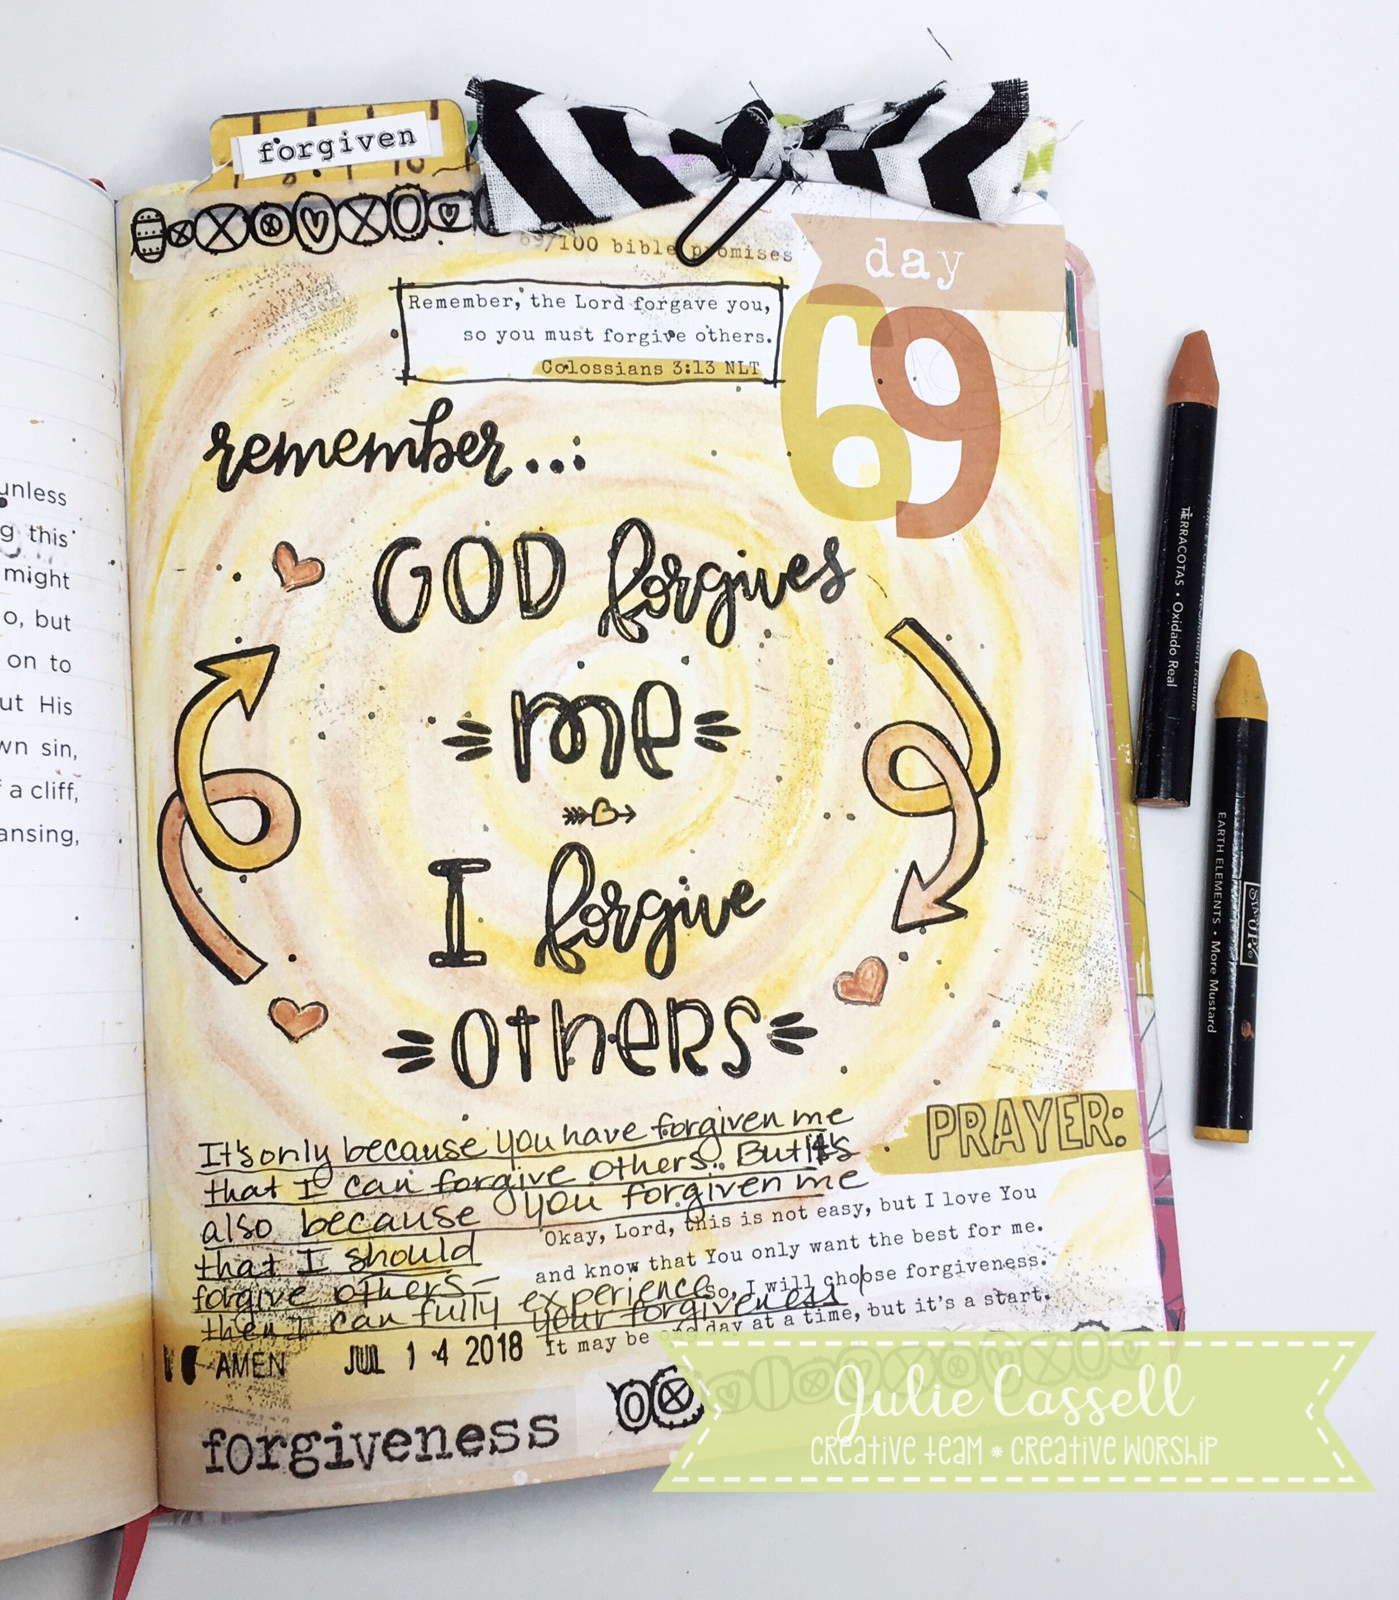 forgiven
69/100 bible promises
day
69
Remember, the Lord forgave you,
so you must forgive others.
Colossians 3:13 NLT
remember...
GOD forgives
me
I forgive
others
unless
g this
might
o, but
on to
ut His
wn sin,
f a cliff,
ansing,
TERRACOTAS • Oxidado Real
EARTH ELEMENTS • More Mustard
PRAYER:
It's only because you have forgiven me
that I can forgive others. But it's
also because you forgiven me
that I should
forgive others -
then I can fully experience
your forgiveness
Okay, Lord, this is not easy, but I love You
and know that You only want the best for me.
So, I will choose forgiveness.
It may be one day at a time, but it's a start.
AMEN JUL 14 2018
forgiveness
Julie Cassell
CREATIVE TEAM * CREATIVE WORSHIP